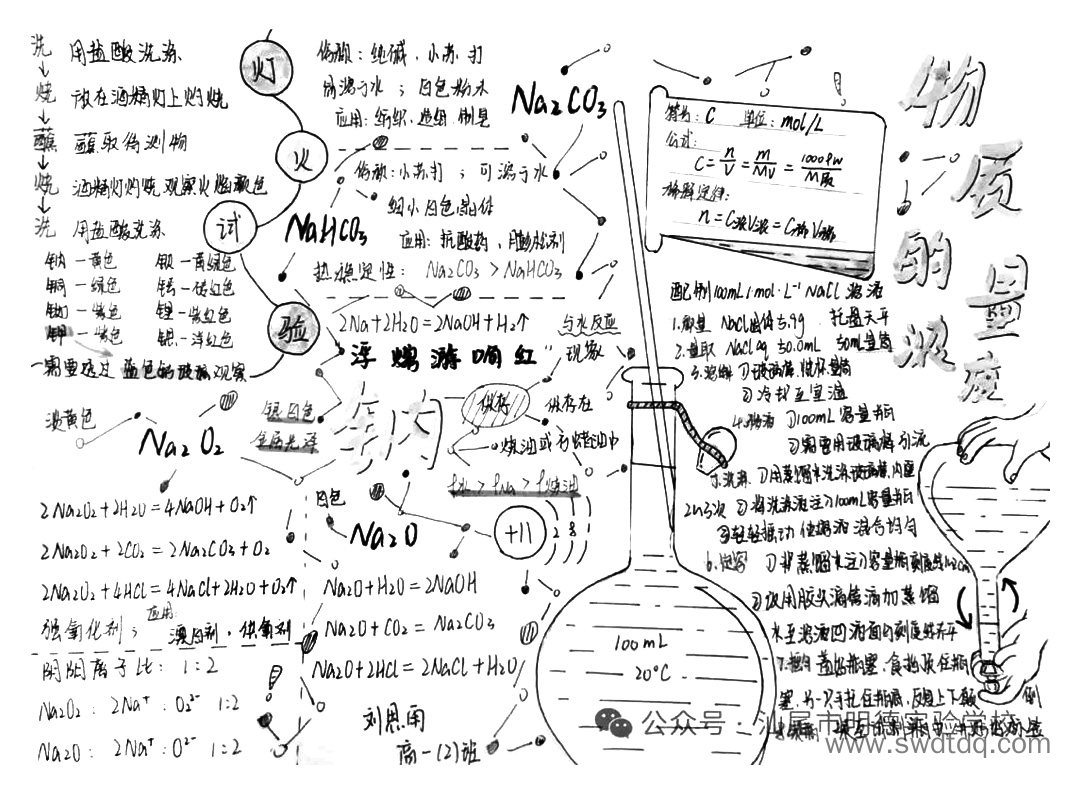 洗 用盐酸洗涤
↓
烧 放在酒精灯上灼烧
↓
蘸 蘸取待测物
↓
烧 酒精灯灼烧,观察火焰颜色
↓
洗 用盐酸洗涤
钠—黄色 钡—黄绿色
铜—绿色
需要透过蓝色的玻璃观察
灯
火
试
验
俗称:纯碱、小苏打
白色粉末
应用:纺织、造纸、制皂
Na₂CO₃
俗称:小苏打;可溶于水
细小白色晶体
NaHCO₃
应用:抗酸药,
热稳定性:Na₂CO₃ > NaHCO₃
2Na+2H₂O=2NaOH+H₂↑ 与水反应
"浮熔游响红" 现象
淡黄色
Na₂O₂
银白色
金属光泽
钠
保存
保存在
煤油或石蜡油中
ρ水>ρNa>ρ煤油
白色
Na₂O
+11 2 8 1
2Na₂O₂+2H₂O=4NaOH+O₂↑
2Na₂O₂+2CO₂=2Na₂CO₃+O₂
2Na₂O₂+4HCl=4NaCl+2H₂O+O₂↑
强氧化剂;应用:漂白剂,供氧剂
阴阳离子比:1:2
Na₂O₂:2Na⁺:O₂²⁻ 1:2
Na₂O:2Na⁺:O²⁻ 1:2
Na₂O+H₂O=2NaOH
Na₂O+CO₂=Na₂CO₃
Na₂O+2HCl=2NaCl+H₂O
高一(2)班
100mL
20°C
物质的量浓度
符号:C 单位:mol/L
公式:
C=n/V=m/MV=1000ρw/M
稀释定律:
n=C浓V浓=C稀V稀
配制100mL1mol·L⁻¹NaCl溶液
1.称量 NaCl固体5.9g 托盘天平
2.量取 NaCl aq 50.0mL 50mL量筒
3.溶解 ①玻璃棒,烧杯,量筒
②冷却至室温
4.移液 ①100mL容量瓶
②需要用玻璃棒引流
5.洗涤 ①用蒸馏水洗涤玻璃棒,内壁
2~3次 ②将洗涤液注入100mL容量瓶
③轻轻振动 使溶液混合均匀
6.定容 ①将蒸馏水注入容量瓶刻度线1~2cm
②改用胶头滴管滴加蒸馏
水至溶液凹液面与刻度线水平
7.摇匀 盖好瓶塞,食指顶住瓶
塞,另一只手托住瓶底,反复上下颠倒
公众号·汕尾市明德实验学校
www.swdtdq.com